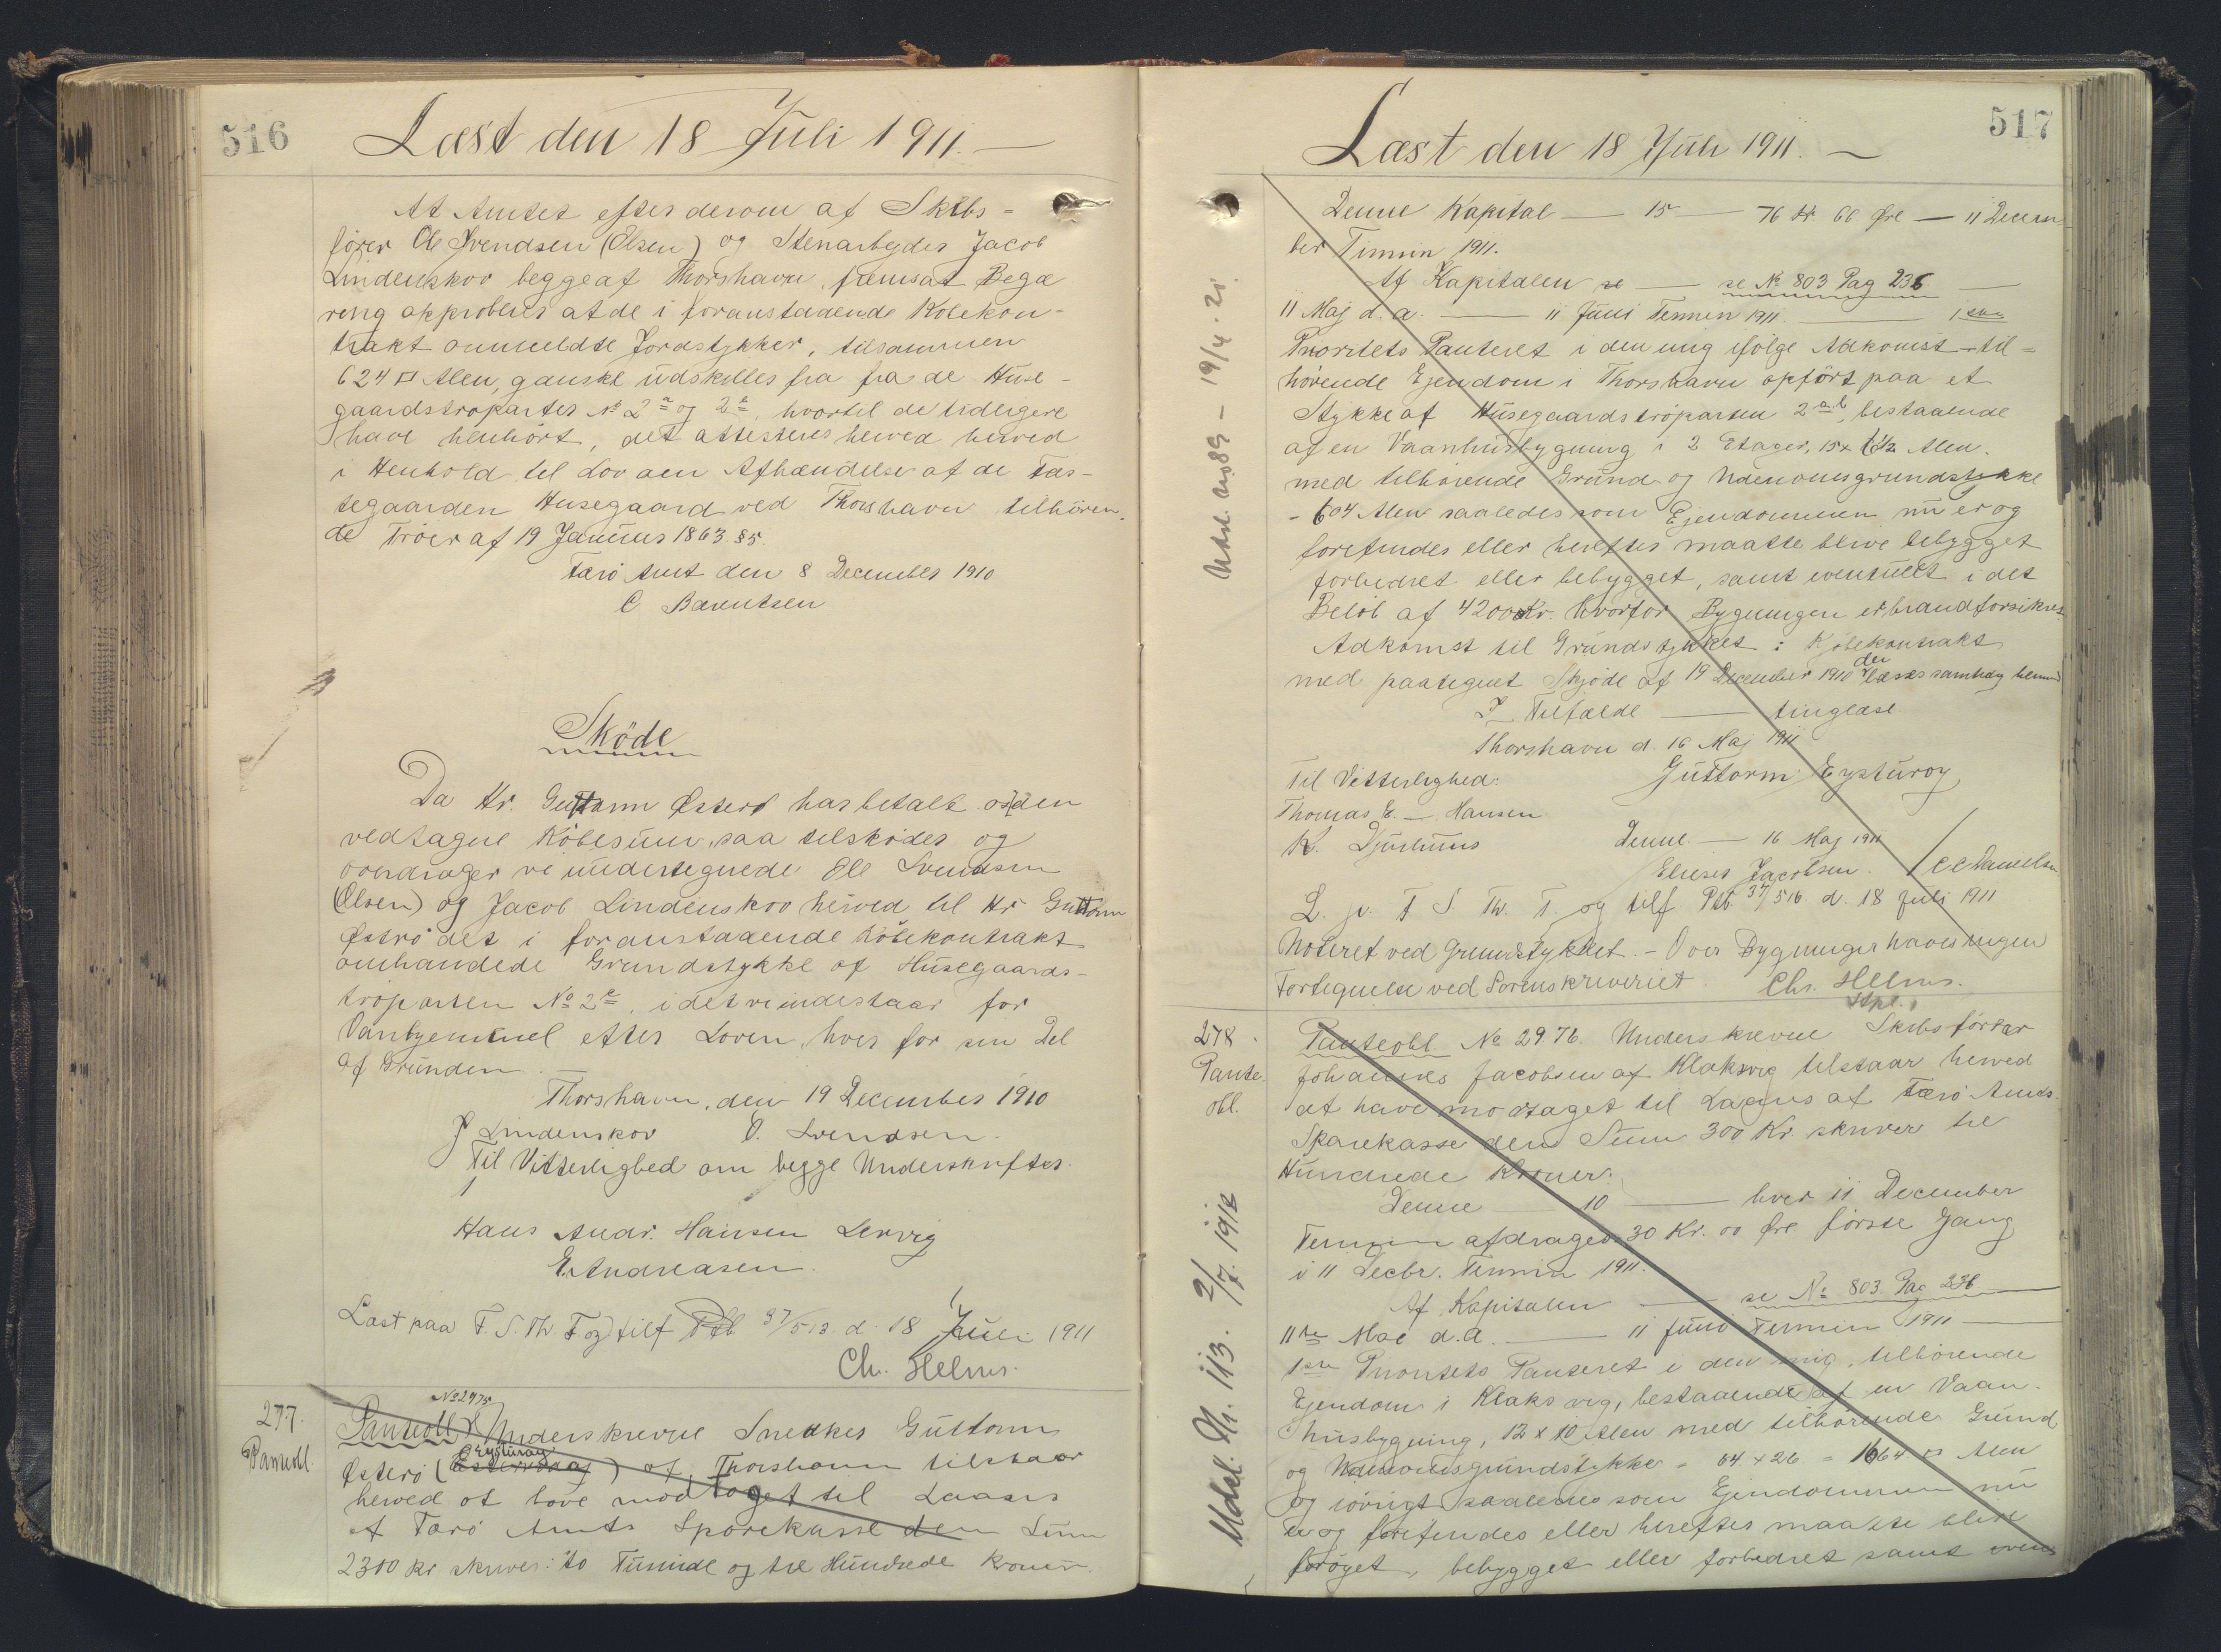 516
Læst den 18 Juli 1911. —
At Amtet efter derom af Skibs=
fører Ole Svendsen (Olsen) og Stenarbejder Jacob
Lindenskov begge af Thorshavn fremsat Begæ
ring approberes at de i foranstaaende Købekon-
trakt ommeldte Jordstykker, tilsammen
624 □ Alen, ganske udskilles fra fra de Huse-
gaardstroparter No 2 og 2, hvortil de tidligere
have henhørt, det attesteres herved herved
i Henhold til Lov om Afhændelse af de Fæs-
tegaarden Husegaard ved Thorshavn tilhøren,
de Trøer af 19 Januar 1863 §5.
Færø Amt den 8 December 1910
C Bærentsen
Skøde
Da Hr. Guttorm Østerø har betalt os den
vedtagne Købesum, saa tilskøder og
overdrager vi undertegnede Ole Svendsen
(Olsen) og Jacob Lindenskov herved til Hr Guttorm
Østrø det i foranstaaende Købekontrakt
omhandlede Grundstykke af Husegaards-
trøparten No 2, idet vi indestaar for
Vanhjemmel efter Loven, hver for sin Del
af Grunden.
Thorshavn, den 19 December 1910
J Lindenskov O. Svendsen.
Til Vitterlighed om begge Underskrifter.
Hans Andr. Hansen Lervig
E. Andreasen.
Læst paa F. S. Th. T. og tilf Ptb 37/513. d. 18 Juli 1911
Ch. Helms.
277.
Panteobl.
No 2975
Panteobl. Underskrevne Snedker Guttorm
Eysturoy
Østerø () af Thorshavn tilstaar
herved at have modtaget til Laans
af Færø Amts Sparekasse den Sum
2300 Kr skriver: to Tusinde og tre Hundrede Kroner.
517
Læst den 18 Juli 1911. —
Denne Kapital — 15 — 76 Kr 66 Øre — 11 Decem
ber Termin 1911.
Af Kapitalen se — se No 803 Pag 236 —
11 Maj d. a. — 11 Juni Termin 1911. — 1ste
Prioritets Panteret i den mig ifølge Adkomst - til=
hørende Ejendom i Thorshavn opført paa et
Stykke af Husegaardstrøparten 2 a b, bestaaende
af en Vaanhusbygning i 2 Etager, 15 x Alen.
med tilhørende Grund og Udenomsgrundstykke
- 604 Alen saaledes som Ejendommen nu er og
forefindes eller herefter maatte blive tilbygget
forbedret eller bebygget, samt eventuelt i det
Beløb af 4200 Kr. hvorfor Bygningen er brandforsikret.
Adkomst til Grundstykket: Kjøbekontrakt
med paategnet Skjøde af 19 December 1910 der læses samtidig hermed
I Tilfælde — tinglæst.
Thorshavn d. 16 Maj 1911
Til Vitterlighed: Guttorm Eysturoy
Thomas E. — Hansen
K. Djurhuus Denne — 16 Maj 1911
Elieser Jacobsen. / C C Danielsen
L. p. F S. Th. T. og tilf Ptb. 37/516. d. 18 Juli 1911
Noteret ved Grundstykket. - Over Bygninger haves ingen
Fortegnelse ved Sorenskriveriet. Chr. Helms.
Udsl. No 89 - 19/4. 21.
278.
Pante-
obl.
Panteobl No 2976. Underskrevne Skibsfører
Johannes Jacobsen af Klaksvig tilstaar herved
at have modtaget til Laans af Færø Amts
Sparekasse den Sum 300 Kr. skriver tre
Hundrede Kroner.
Denne — 10 — hver 11 December
Termin afdrages 30 Kr. 00 Øre første Gang
i 11 Decbr. Termin 1911.
Af Kapitalen — se No 803 Pag 236 —
11te Mai d. A. — 11 Juni Termin 1911 —
1ste Prioritets Panteret i den mig, tilhørende
Ejendom i Klaksvig, bestaaende af en Vaan-
husbygning, 12 x 10 Alen med tilhørende Grund
og Udenomsgrundstykke = 64 x 26. = 1664 □ Alen
og iøvrigt saaledes som Ejendommen nu
er og forefindes eller herefter maatte blive
forøget, bebygget eller forbedret samt even
Udsl. Nr. 113.